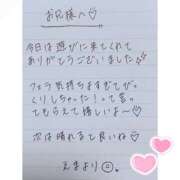 お兄様へ♡
今日は遊びに来てくれて
ありがとうございました
フェラ気持ちよすぎてびっ
くりしちゃった!って言っ
てもらえて嬉しいよ〜♡
次は晴れると良いね♡
えまより